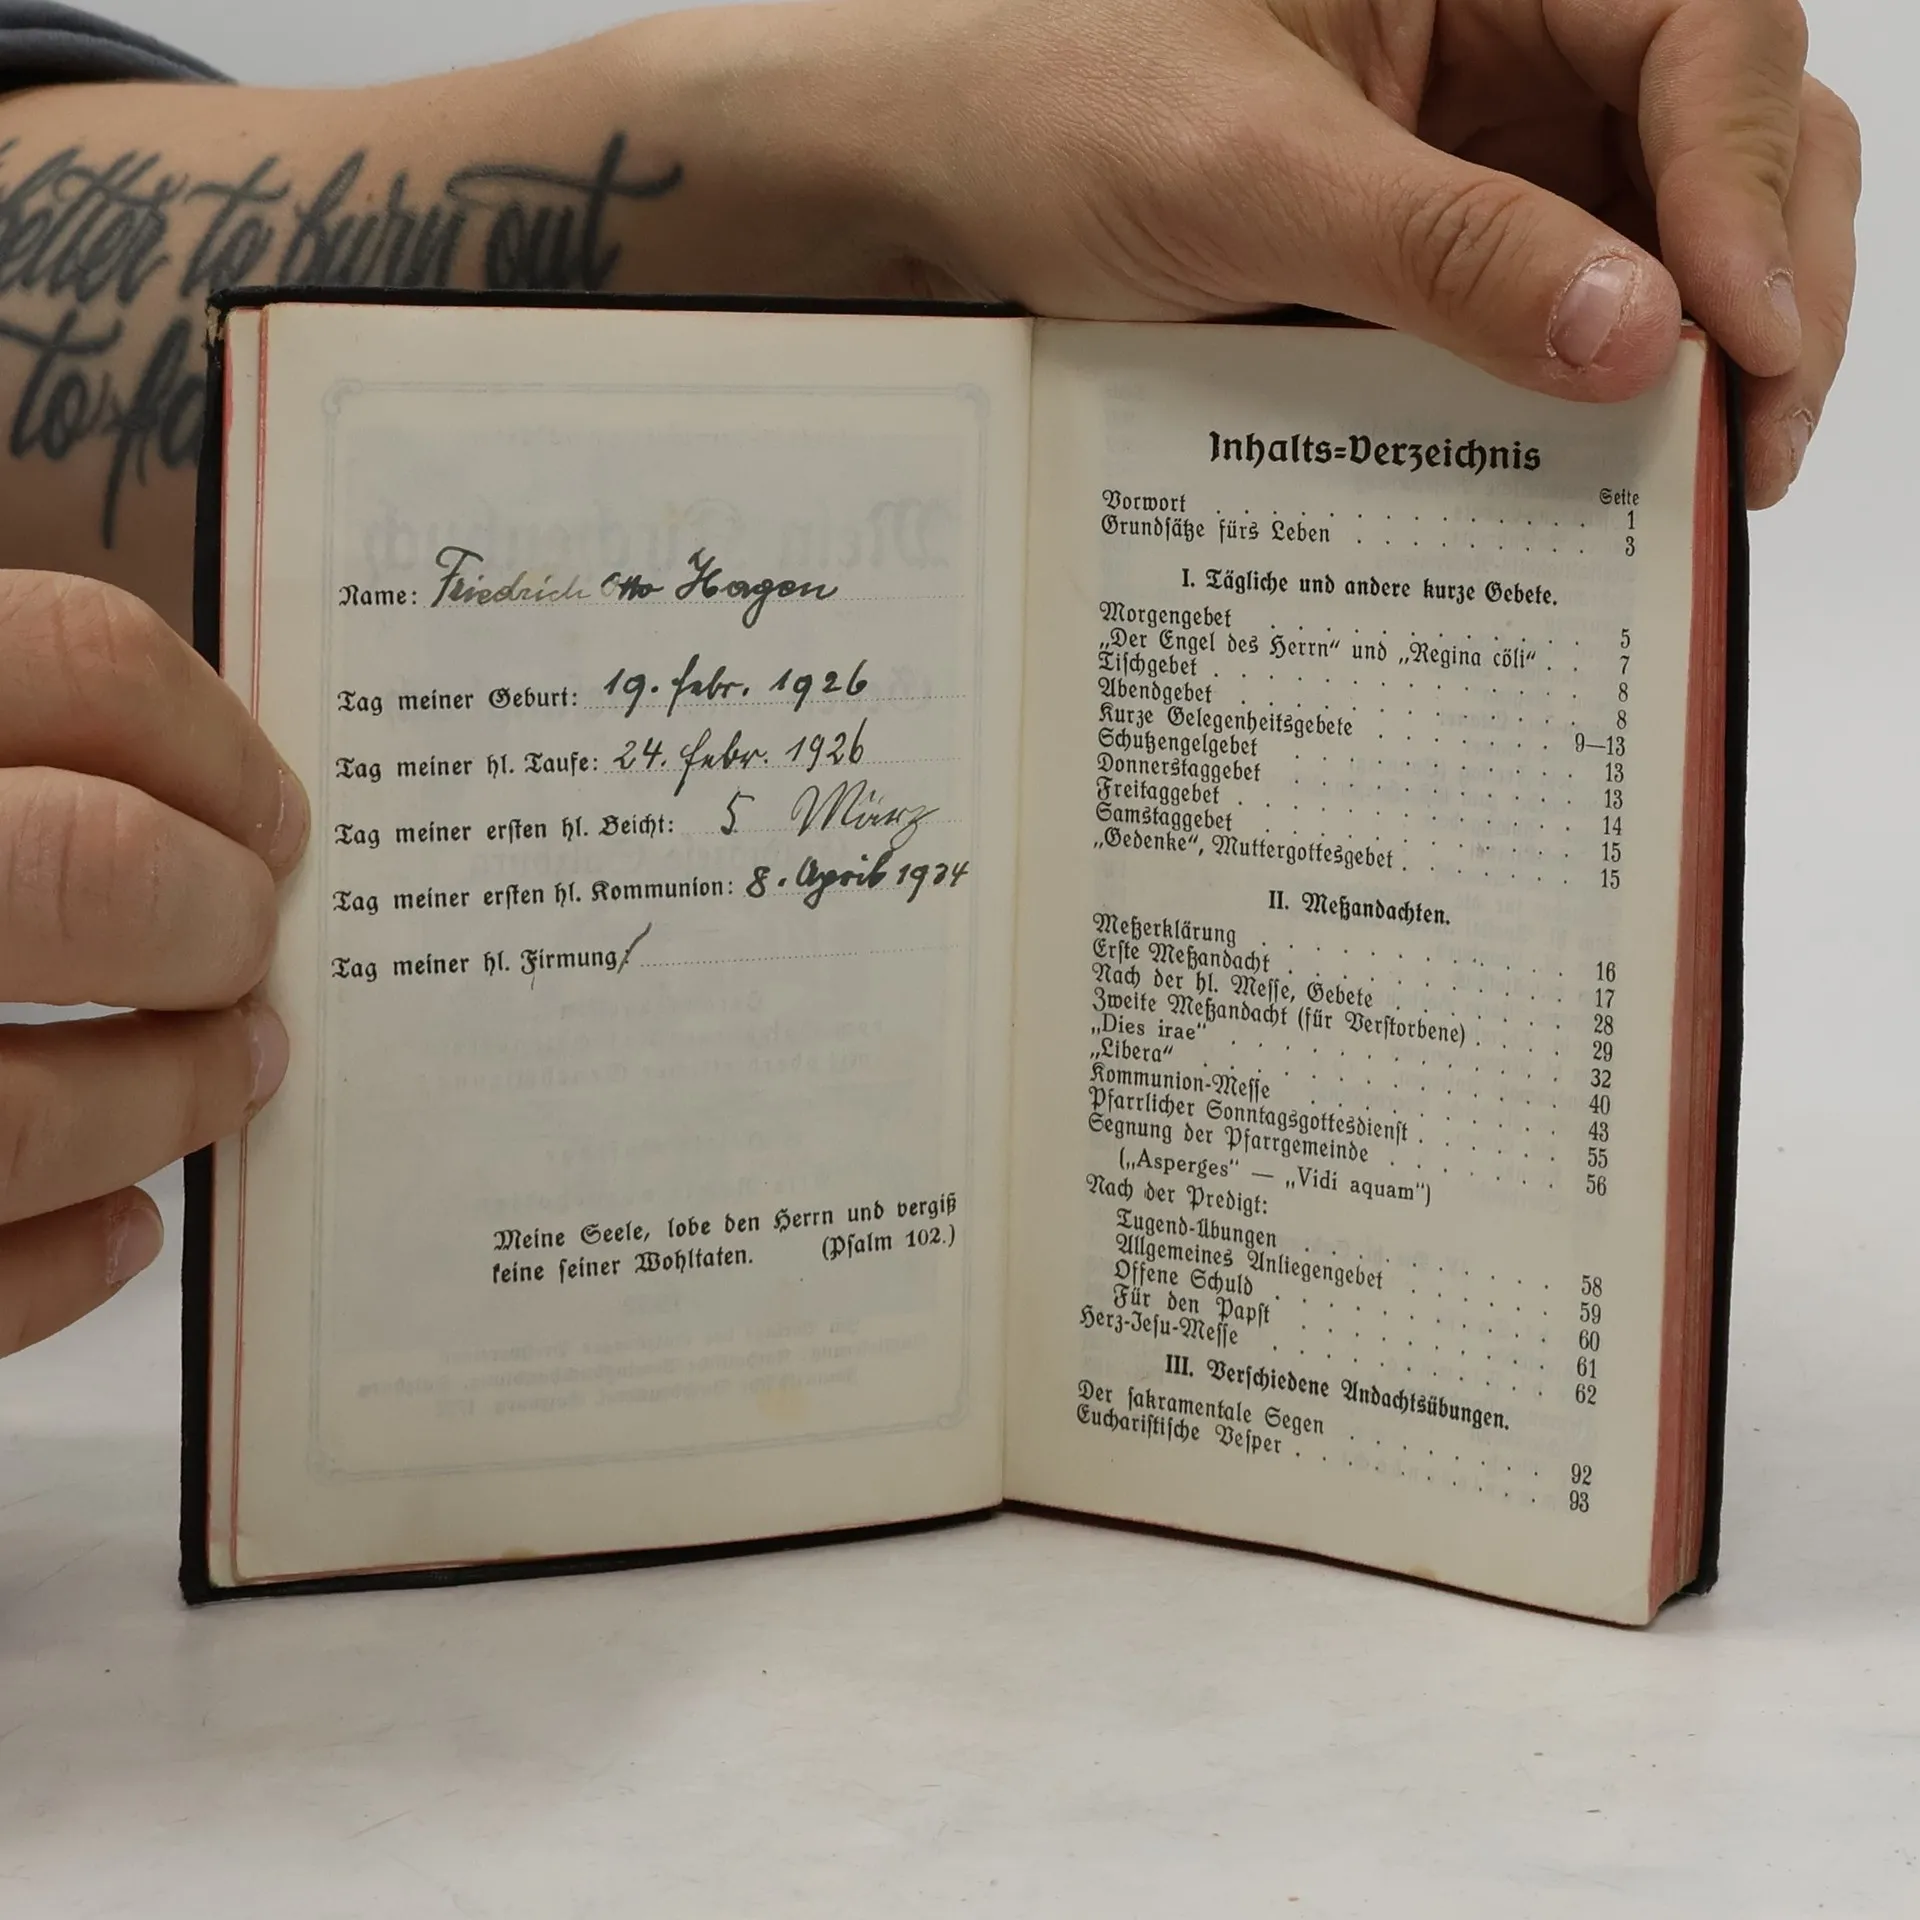 better to burn out
to fa
Name: Friedrich Otto Hagen
Tag meiner Geburt: 19. febr. 1926
Tag meiner hl. Taufe: 24. febr. 1926
Tag meiner ersten hl. Beicht: 5 März
Tag meiner ersten hl. Kommunion: 8. April 1934
Tag meiner hl. Firmung:
Meine Seele, lobe den Herrn und vergiß
keine seiner Wohltaten. (Psalm 102.)
Inhalts=Verzeichnis
Seite
Vorwort . . . . . . . . . . . . . . 1
Grundsätze fürs Leben . . . . . . . . . 3
I. Tägliche und andere kurze Gebete.
Morgengebet . . . . . . . . . . . . 5
„Der Engel des Herrn“ und „Regina cöli“ . . 7
Tischgebet . . . . . . . . . . . . . 8
Abendgebet . . . . . . . . . . . . . 8
Kurze Gelegenheitsgebete . . . . . . . 9—13
Schutzengelgebet . . . . . . . . . . . 13
Donnerstaggebet . . . . . . . . . . . 13
Freitaggebet . . . . . . . . . . . . . 14
Samstaggebet . . . . . . . . . . . . 15
„Gedenke“, Muttergottesgebet . . . . . . . 15
II. Meßandachten.
Meßerklärung . . . . . . . . . . . . 16
Erste Meßandacht . . . . . . . . . . . 17
Nach der hl. Messe, Gebete . . . . . . . 28
Zweite Meßandacht (für Verstorbene) . . . . 29
„Dies irae“ . . . . . . . . . . . . . 32
„Libera“ . . . . . . . . . . . . . . 40
Kommunion-Messe . . . . . . . . . . 43
Pfarrlicher Sonntagsgottesdienst . . . . . . 55
Segnung der Pfarrgemeinde . . . . . . . 56
(„Asperges“ — „Vidi aquam“)
Nach der Predigt:
Tugend-Übungen . . . . . . . . . . 58
Allgemeines Anliegengebet . . . . . . 59
Offene Schuld . . . . . . . . . . . 60
Für den Papst . . . . . . . . . . . 61
Herz-Jesu-Messe . . . . . . . . . . . 62
III. Verschiedene Andachtsübungen.
Der sakramentale Segen . . . . . . . . 92
Eucharistische Vesper . . . . . . . . . . 93